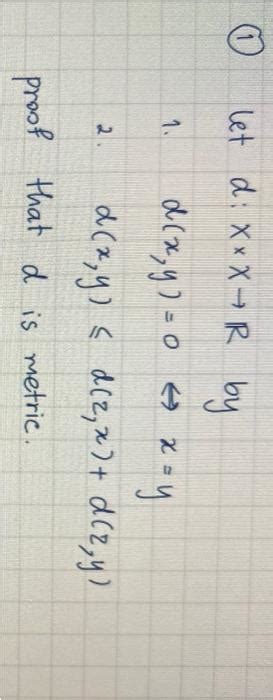 ① let d : X × X → ℝ by
1. d(x,y) = 0 ⇔ x = y
2. d(x,y) ≤ d(z,x) + d(z,y)
proof that d is metric.